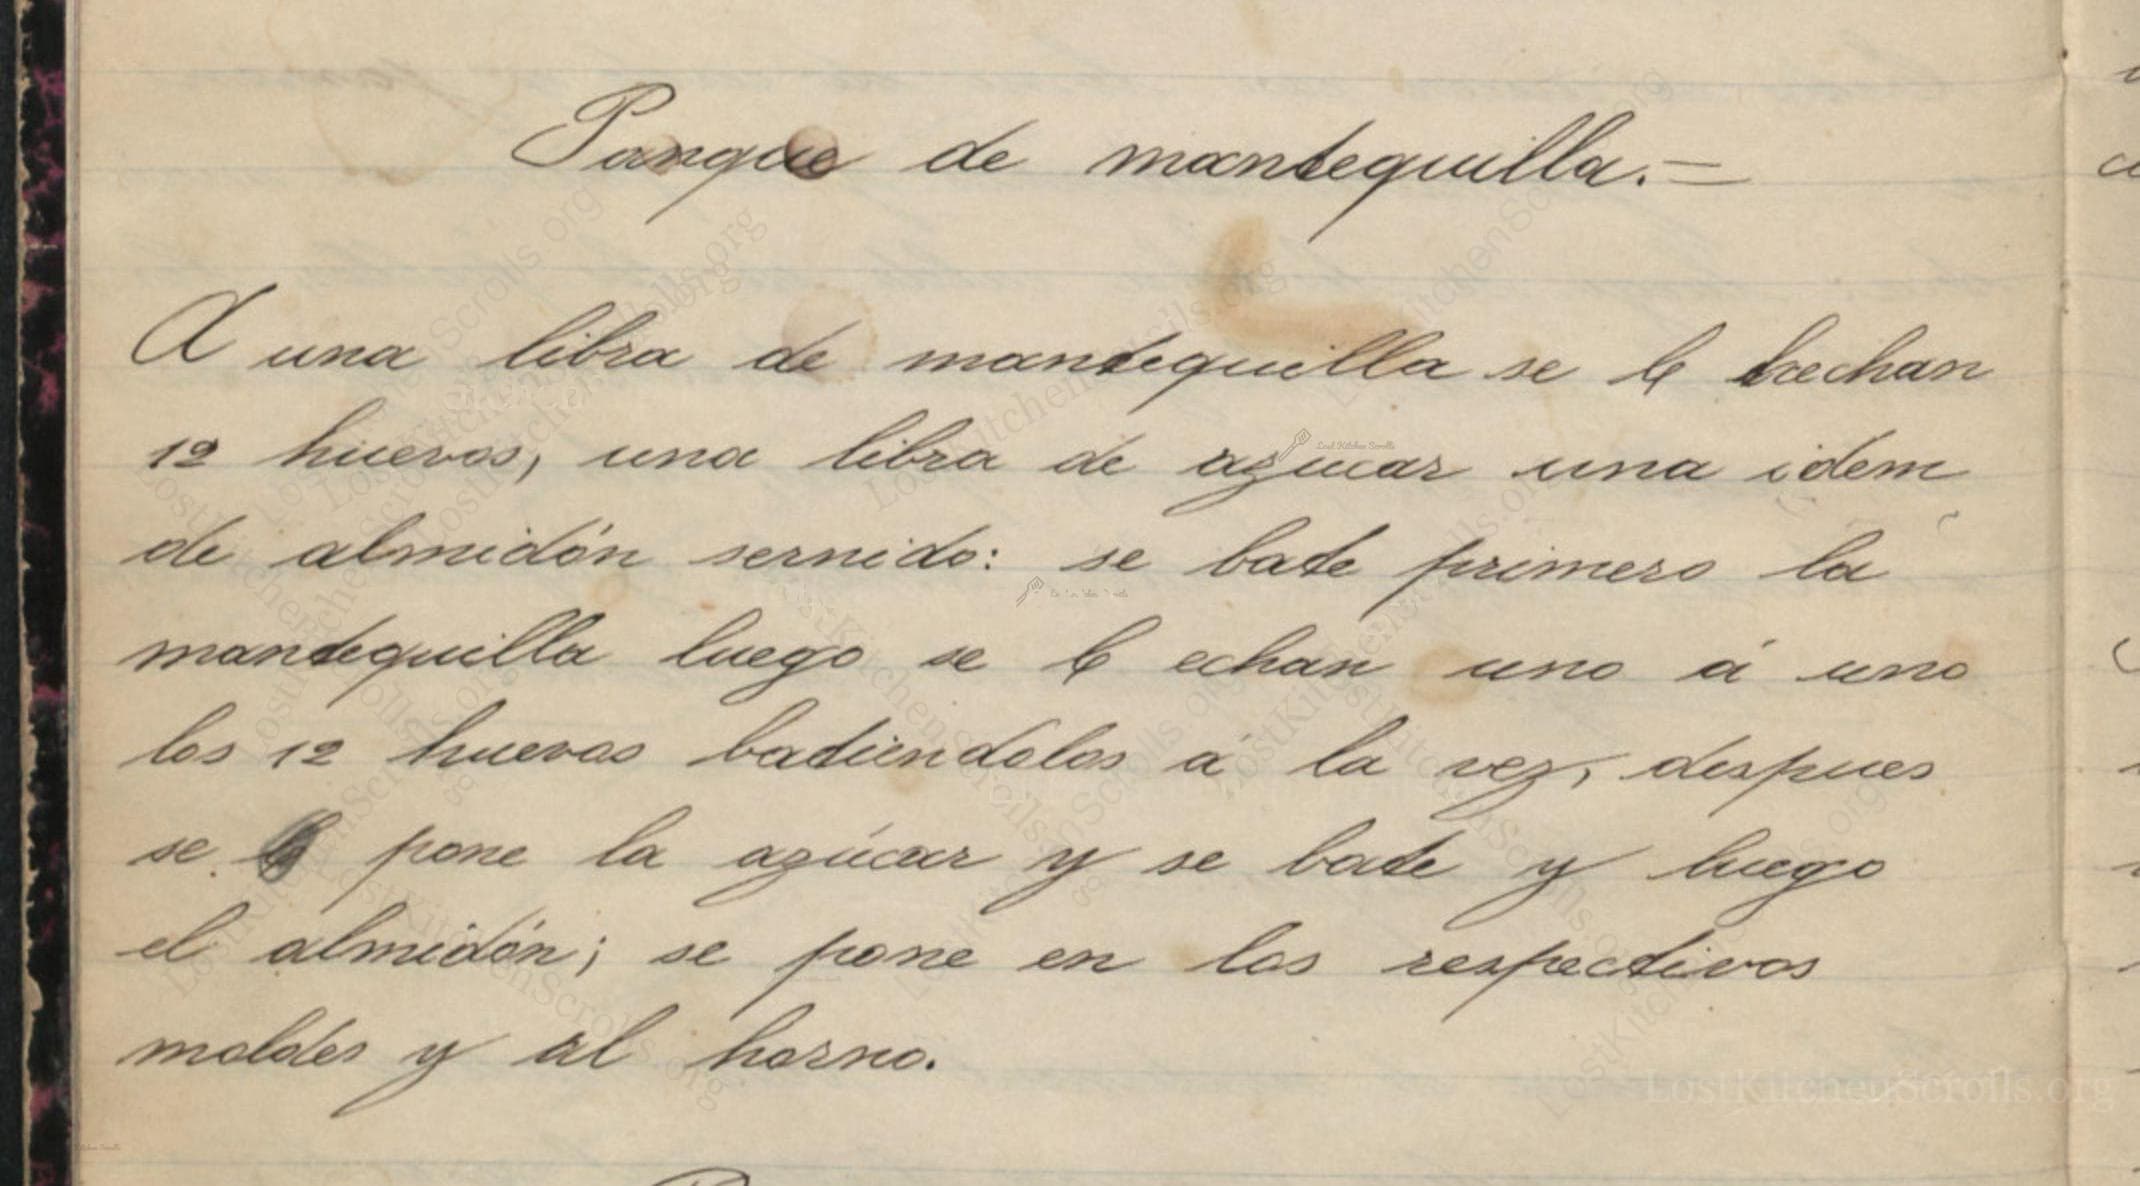 Panque de mantequilla.=
A una libra de mantequilla se le hechan
12 huevos, una libra de azucar una idem
de almidón sernido: se bate primero la
mantequilla luego se le echan uno á uno
los 12 huevos batiendolos á la vez, despues
se le pone la azúcar y se bate y luego
el almidón; se pone en los respectivos
moldes y al horno.
LostKitchenScrolls.org